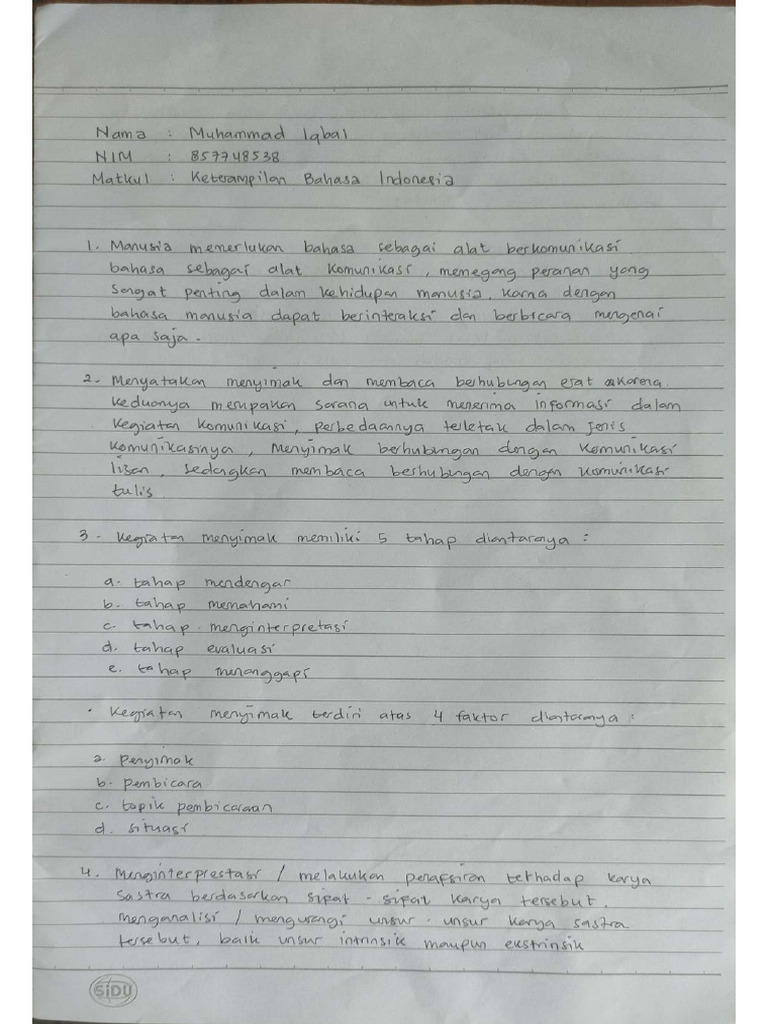 Nama : Muhammad Iqbal
NIM : 857748538
Matkul : Keterampilan Bahasa Indonesia
1. Manusia memerlukan bahasa sebagai alat berkomunikasi
bahasa sebagai alat komunikasi, memegang peranan yang
Sangat penting dalam kehidupan manusia. karna dengan
bahasa manusia dapat berinteraksi dan berbicara mengenai
apa saja.
2. Menyatakan menyimak dan membaca berhubungan erat karena
keduanya merupakan sarana untuk menerima informasi dalam
kegiatan komunikasi, perbedaannya terletak dalam jenis
komunikasinya, menyimak berhubungan dengan komunikasi
lisan, sedangkan membaca berhubungan dengan komunikasi
tulis
3. kegiatan menyimak memiliki 5 tahap diantaranya :
a. tahap mendengar
b. tahap memahami
c. tahap menginterpretasi
d. tahap evaluasi
e. tahap menanggapi
• kegiatan menyimak terdiri atas 4 faktor diantaranya :
a. penyimak
b. pembicara
c. topik pembicaraan
d. situasi
4. Menginterprestasi / melakukan penafsiran terhadap karya
sastra berdasarkan sipat - sipat karya tersebut.
menganalisi / mengurangi unsur - unsur karya sastra
tersebut, baik unsur intrinsik maupun ekstrinsik
SiDU